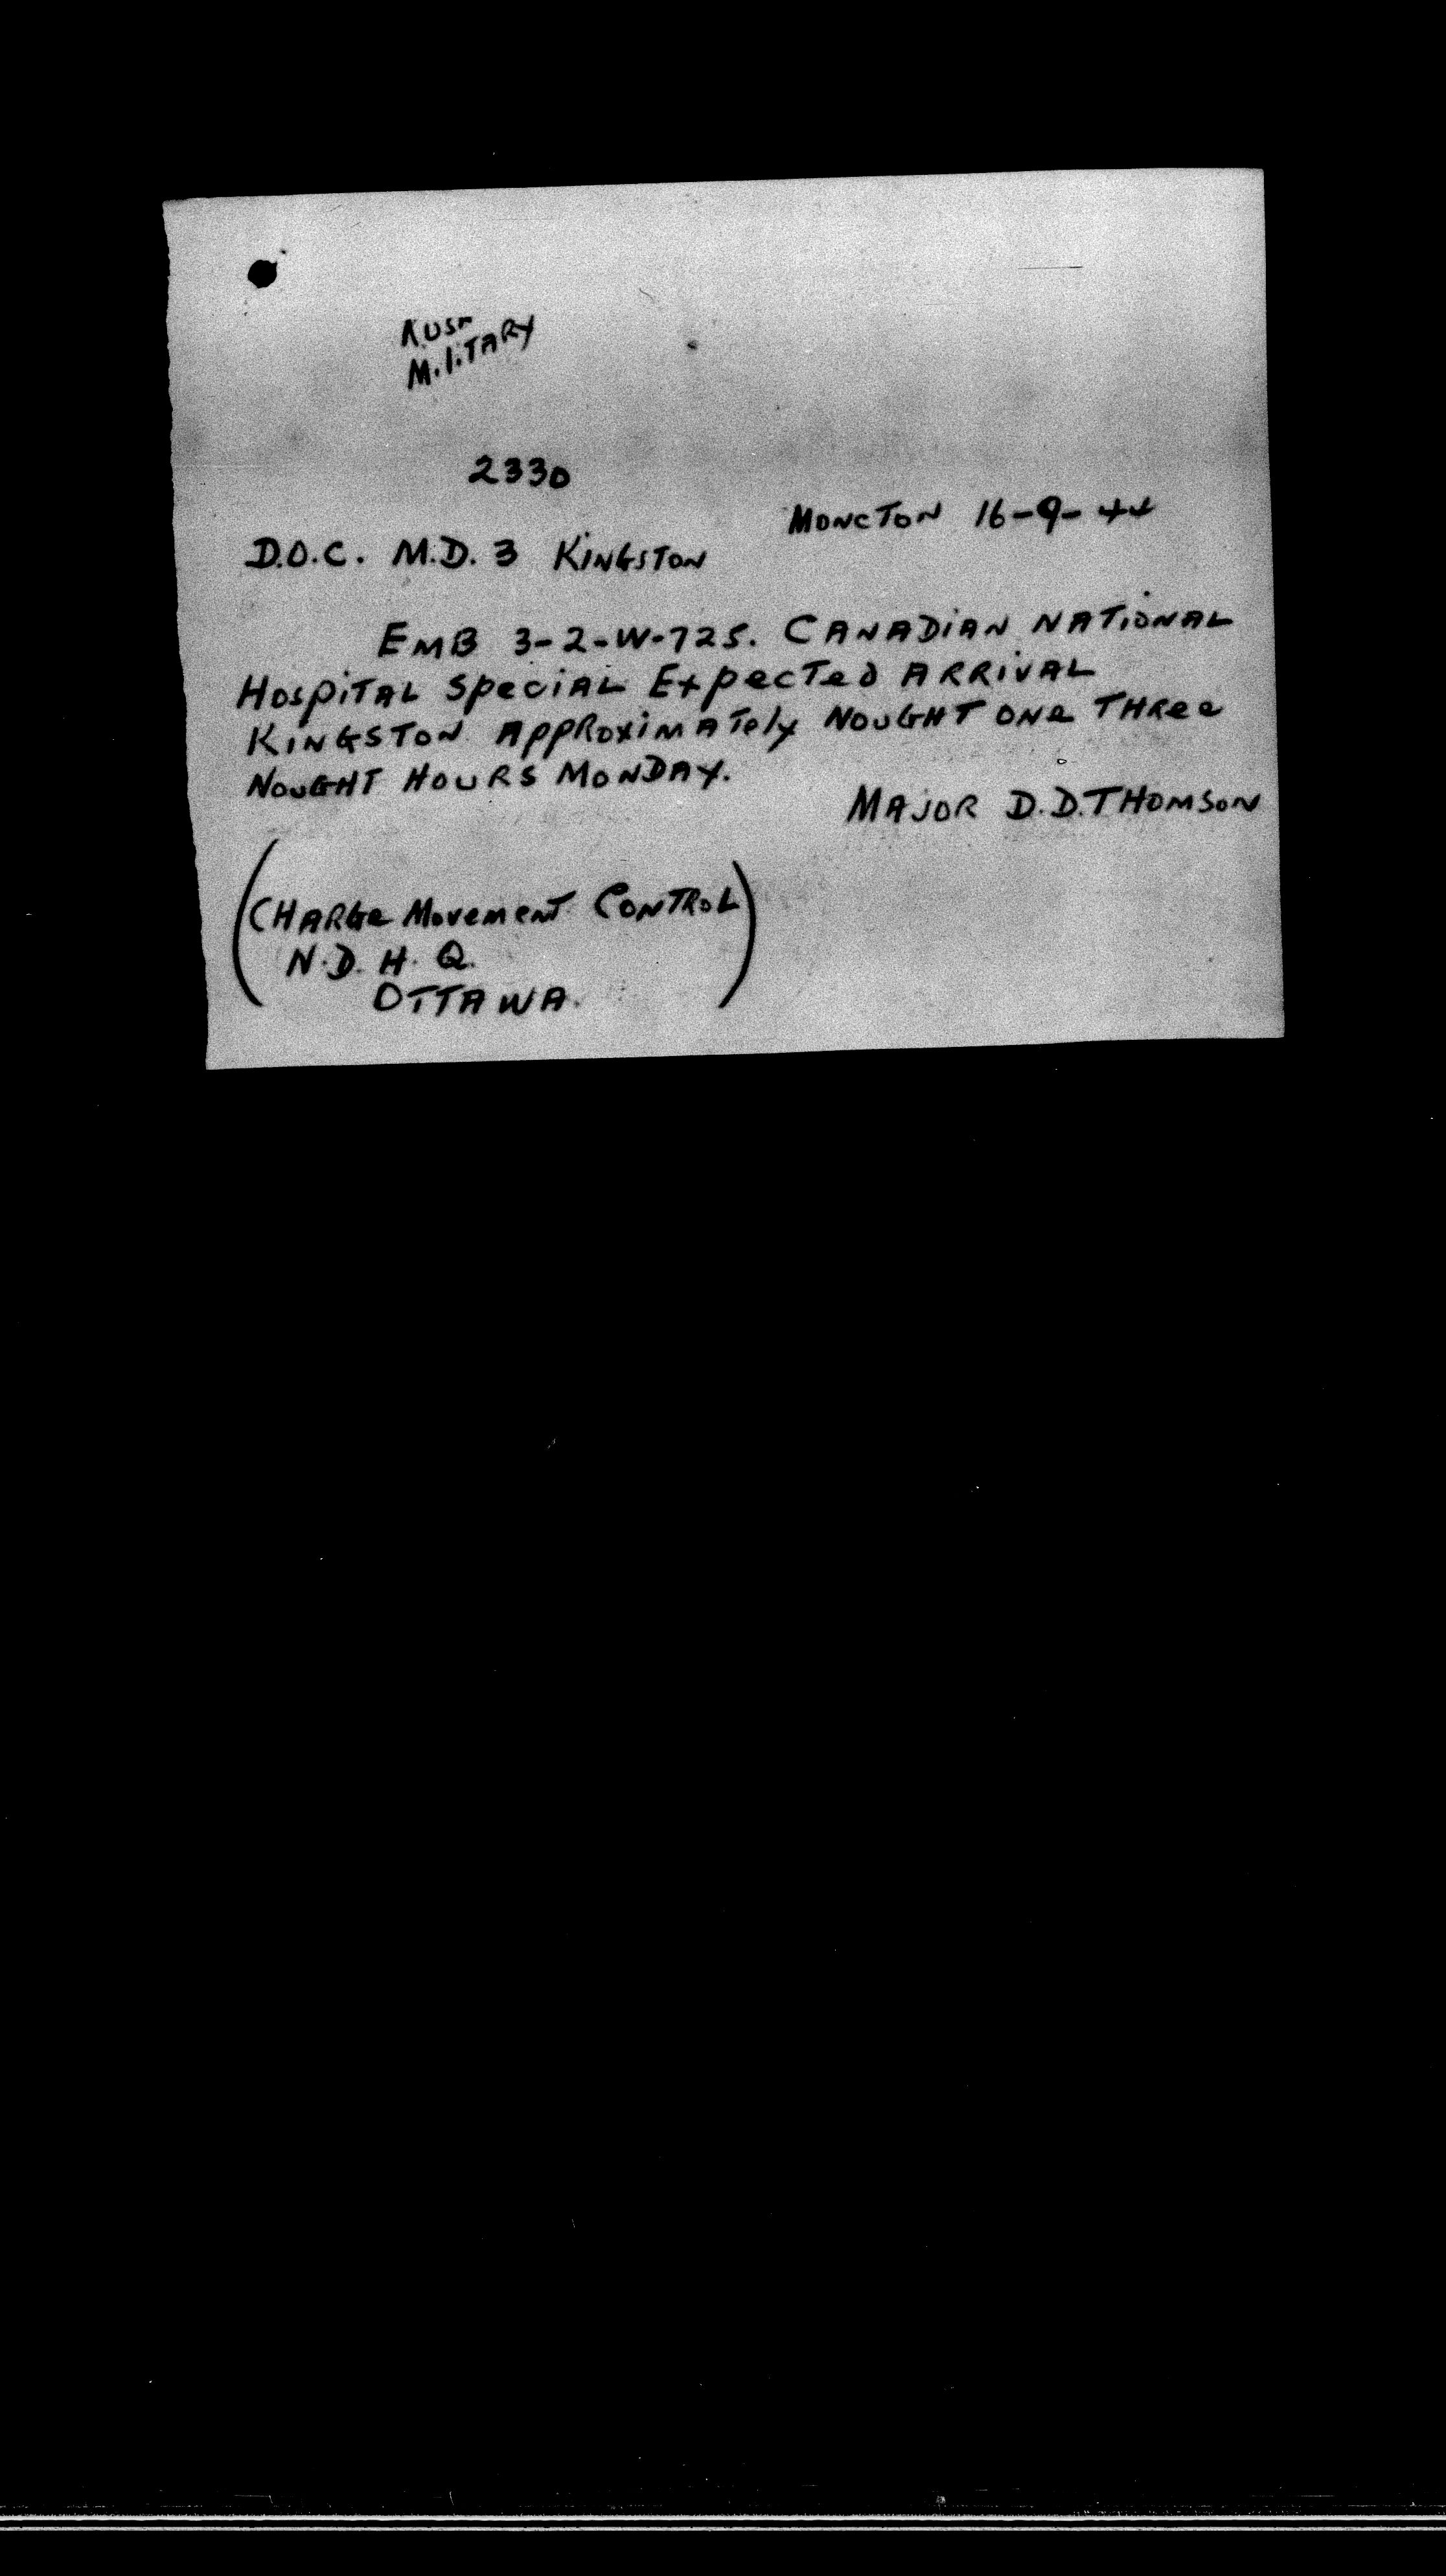 MILITARY
2330
MONCTON 16-9-44
D.O.C. M.D. 3 KINGSTON
EMB 3-2-W-725. CANADIAN NATIONAL
HOSPITAL SPECIAL EXPECTED ARRIVAL
KINGSTON APPROXIMATELY NOUGHT ONE THREE
NOUGHT HOURS MONDAY.
MAJOR D.D. THOMSON
(CHARGE MOVEMENT CONTROL
N.D.H.Q.
OTTAWA.)